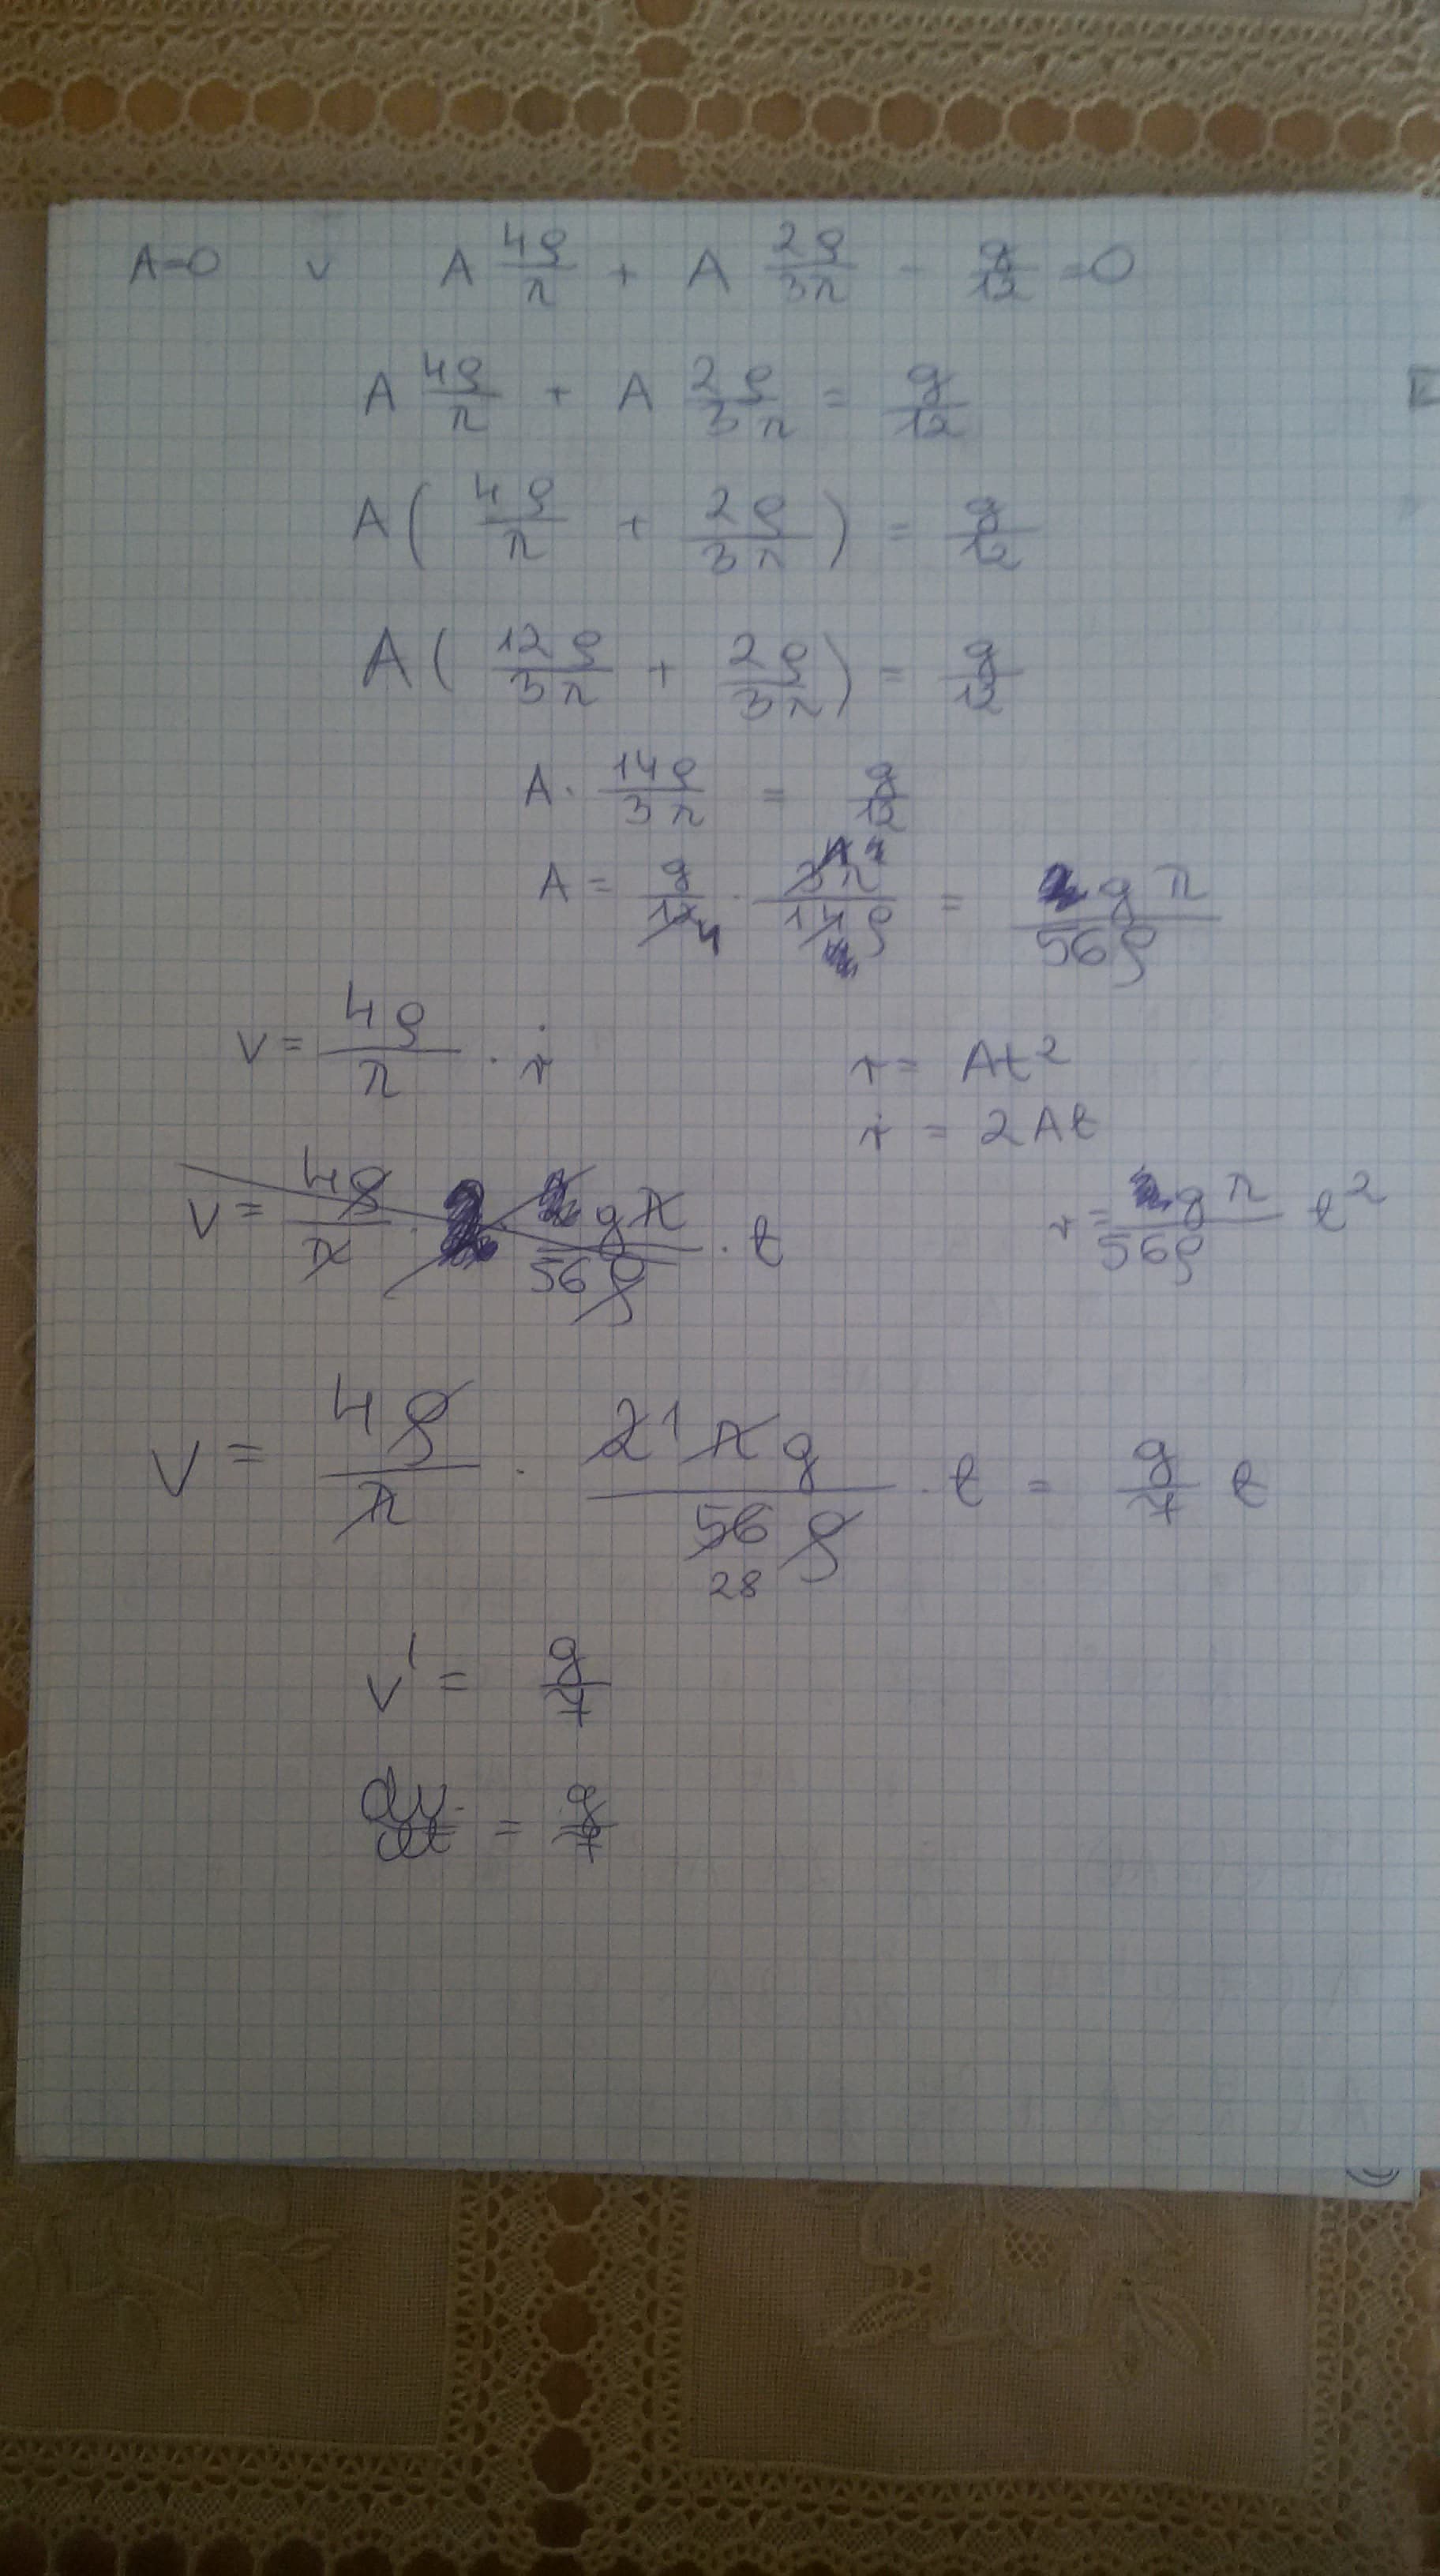 A=0 v A 4ρ/π + A 2ρ/3π - g/12 = 0
A 4ρ/π + A 2ρ/3π = g/12
A ( 4ρ/π + 2ρ/3π ) = g/12
A ( 12ρ/3π + 2ρ/3π ) = g/12
A · 14ρ/3π = g/12
A = g/12 4 · 3π 1/14ρ = gπ/56ρ
v = 4ρ/π · ṙ r = At²
ṙ = 2At
v = 4ρ/π · gπ/56ρ · t r = gπ/56ρ t²
v = 4ρ/π · 2 1 πg/56 28 ρ · t = g/7 t
v' = g/7
dv/dt = g/7